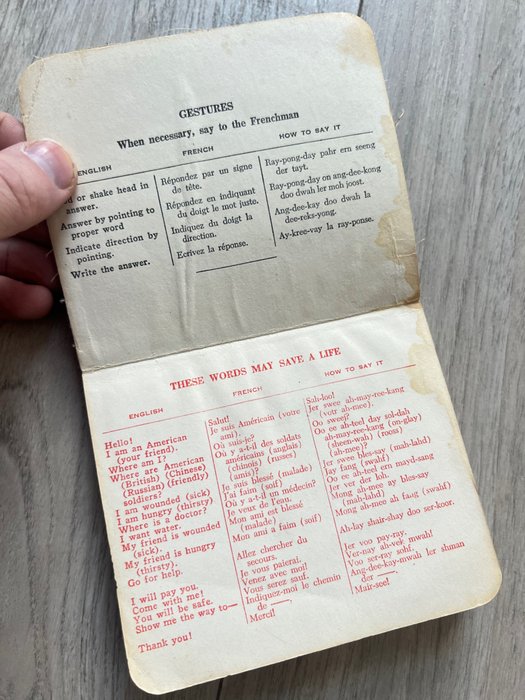 GESTURES
When necessary, say to the Frenchman
ENGLISH
or shake head in
answer.
Answer by pointing to
proper word
Indicate direction by
pointing.
Write the answer.
FRENCH
Répondez par un signe
de tête.
Répondez en indiquant
du doigt le mot juste.
Indiquez du doigt la
direction.
Ecrivez la réponse.
HOW TO SAY IT
Ray-pong-day pahr ern seeng
der tayt.
Ray-pong-day on ang-dee-kong
doo dwah ler moh joost.
Ang-dee-kay doo dwah la
dee-reks-yong.
Ay-kree-vay la ray-ponse.
THESE WORDS MAY SAVE A LIFE
ENGLISH
Hello!
I am an American
(your friend).
Where am I?
Where are American
(British) (Chinese)
(Russian) (friendly)
soldiers?
I am wounded (sick)
I am hungry (thirsty)
Where is a doctor?
I want water.
My friend is wounded
(sick).
My friend is hungry
(thirsty).
Go for help.
I will pay you.
Come with me!
You will be safe.
Show me the way to—
Thank you!
FRENCH
Salut!
Je suis Américain (votre
ami).
Où suis-je?
Où y a-t-il des soldats
américains (anglais)
(chinois) (russes)
(amis)?
Je suis blessé (malade)
J'ai faim (soif)
Où y a-t-il un médecin?
Je veux de l'eau.
Mon ami est blessé
(malade)
Mon ami a faim (soif)
Allez chercher du
secours.
Je vous paierai.
Venez avec moi!
Vous serez sauf.
Indiquez-moi le chemin
de ——.
Merci!
HOW TO SAY IT
Sah-loo!
Jer swee ah-may-ree-kang
(votr ah-mee).
Oo sweej?
Oo ee ah-teel day sol-dah
ah-may-ree-kang (on-glay)
(sheen-wah) (roos)
(ah-mee)?
Jer swee bles-say (mah-lahd)
Jay fang (swahf)
Oo ee ah-teel ern mayd-sang
Jer vet der loh.
Mong ah-mee ay bles-say
(mah-lahd)
Mong ah-mee ah fang (swahf)
Ah-lay shair-shay doo ser-koor.
Jer voo pay-ray.
Ver-nay ah-vek mwah!
Voo ser-ray sohf.
Ang-dee-kay-mwah ler shman
der ——.
Mair-see!